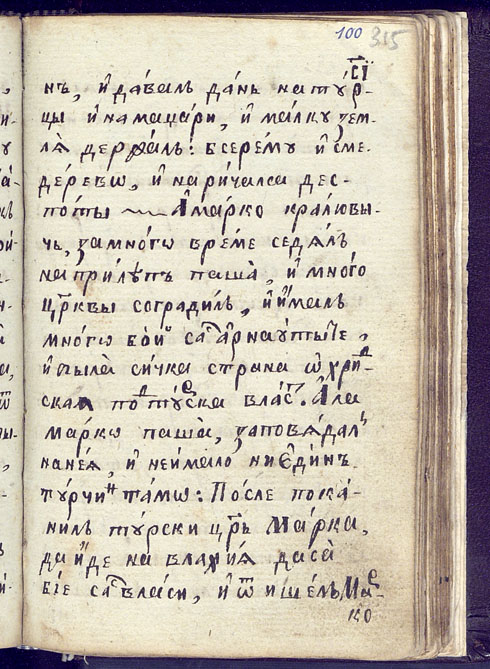 100 315
СІ҃
нъ, и҆ дава́лъ да́нь на ту́р-
цы и҆ на маџа́ри, и҆ ма́лку ѕем-
ля̀ держа́лъ: в сере́мꙋ и҆ сме-
де́рево, и҆ нари́чалса дес-
по́ты ~ А҆ ма́рко кралю́вы-
чь, ѕа мно́гѡ вре́ме седѧ́лъ
на при́лѣпъ паша̀, и҆ мно́го
цр҃квы согради́лъ, и҆ и҆ма́лъ
мно́гѡ бо́й са а҆рнаꙋ́тыте,
и҆ была̀ си́чка страна ѡ҆хри́д-
скаѧ под ту́рска влаⷭ҇. А҆ла
ма́ркѡ паша̀, ѕаповѧ́дал
на неѧ́, и҆ не и҆ма́ло ни є҆ди́нъ
ту́рчинъ та́мѡ: По́сле пока́-
нилъ ту́рски цр҃ь ма́рка,
да и҆́де на вла́хиѧ да са̀
бі́е са вла́си, и҆ ѿ ише́лъ Мар-
ко